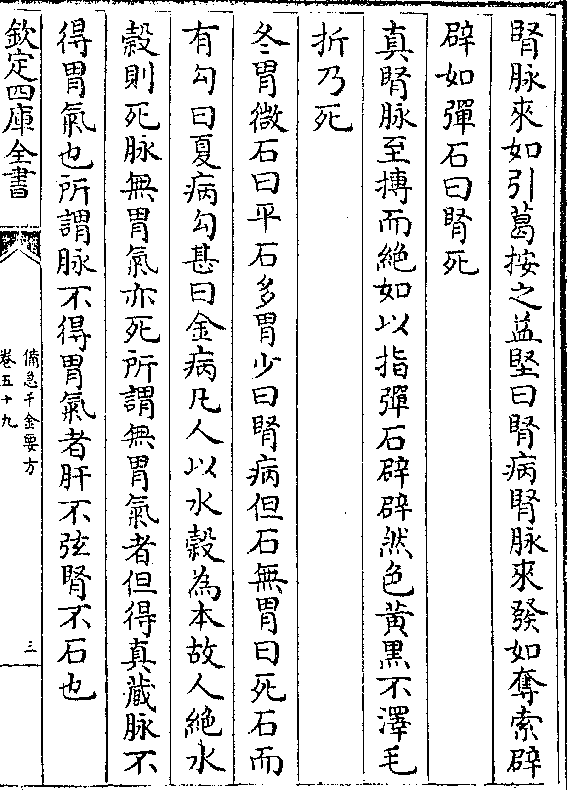 腎脉來如引葛按之益堅曰腎病腎脉來發如奪索辟
辟如彈石曰腎死
真腎脉至摶而絶如以指彈石辟辟然色黃黒不澤毛
折乃死
冬胃微石曰平石多胃少曰腎病但石無胃曰死石而
有勾曰夏病勾甚曰金病凡人以水穀為本故人絶水
穀則死脉無胃氣亦死所謂無胃氣者但得真藏脉不
得胃氣也所謂脉不得胃氣者肝不弦腎不石也
欽定四庫全書
備急千金要方
卷五十九
三